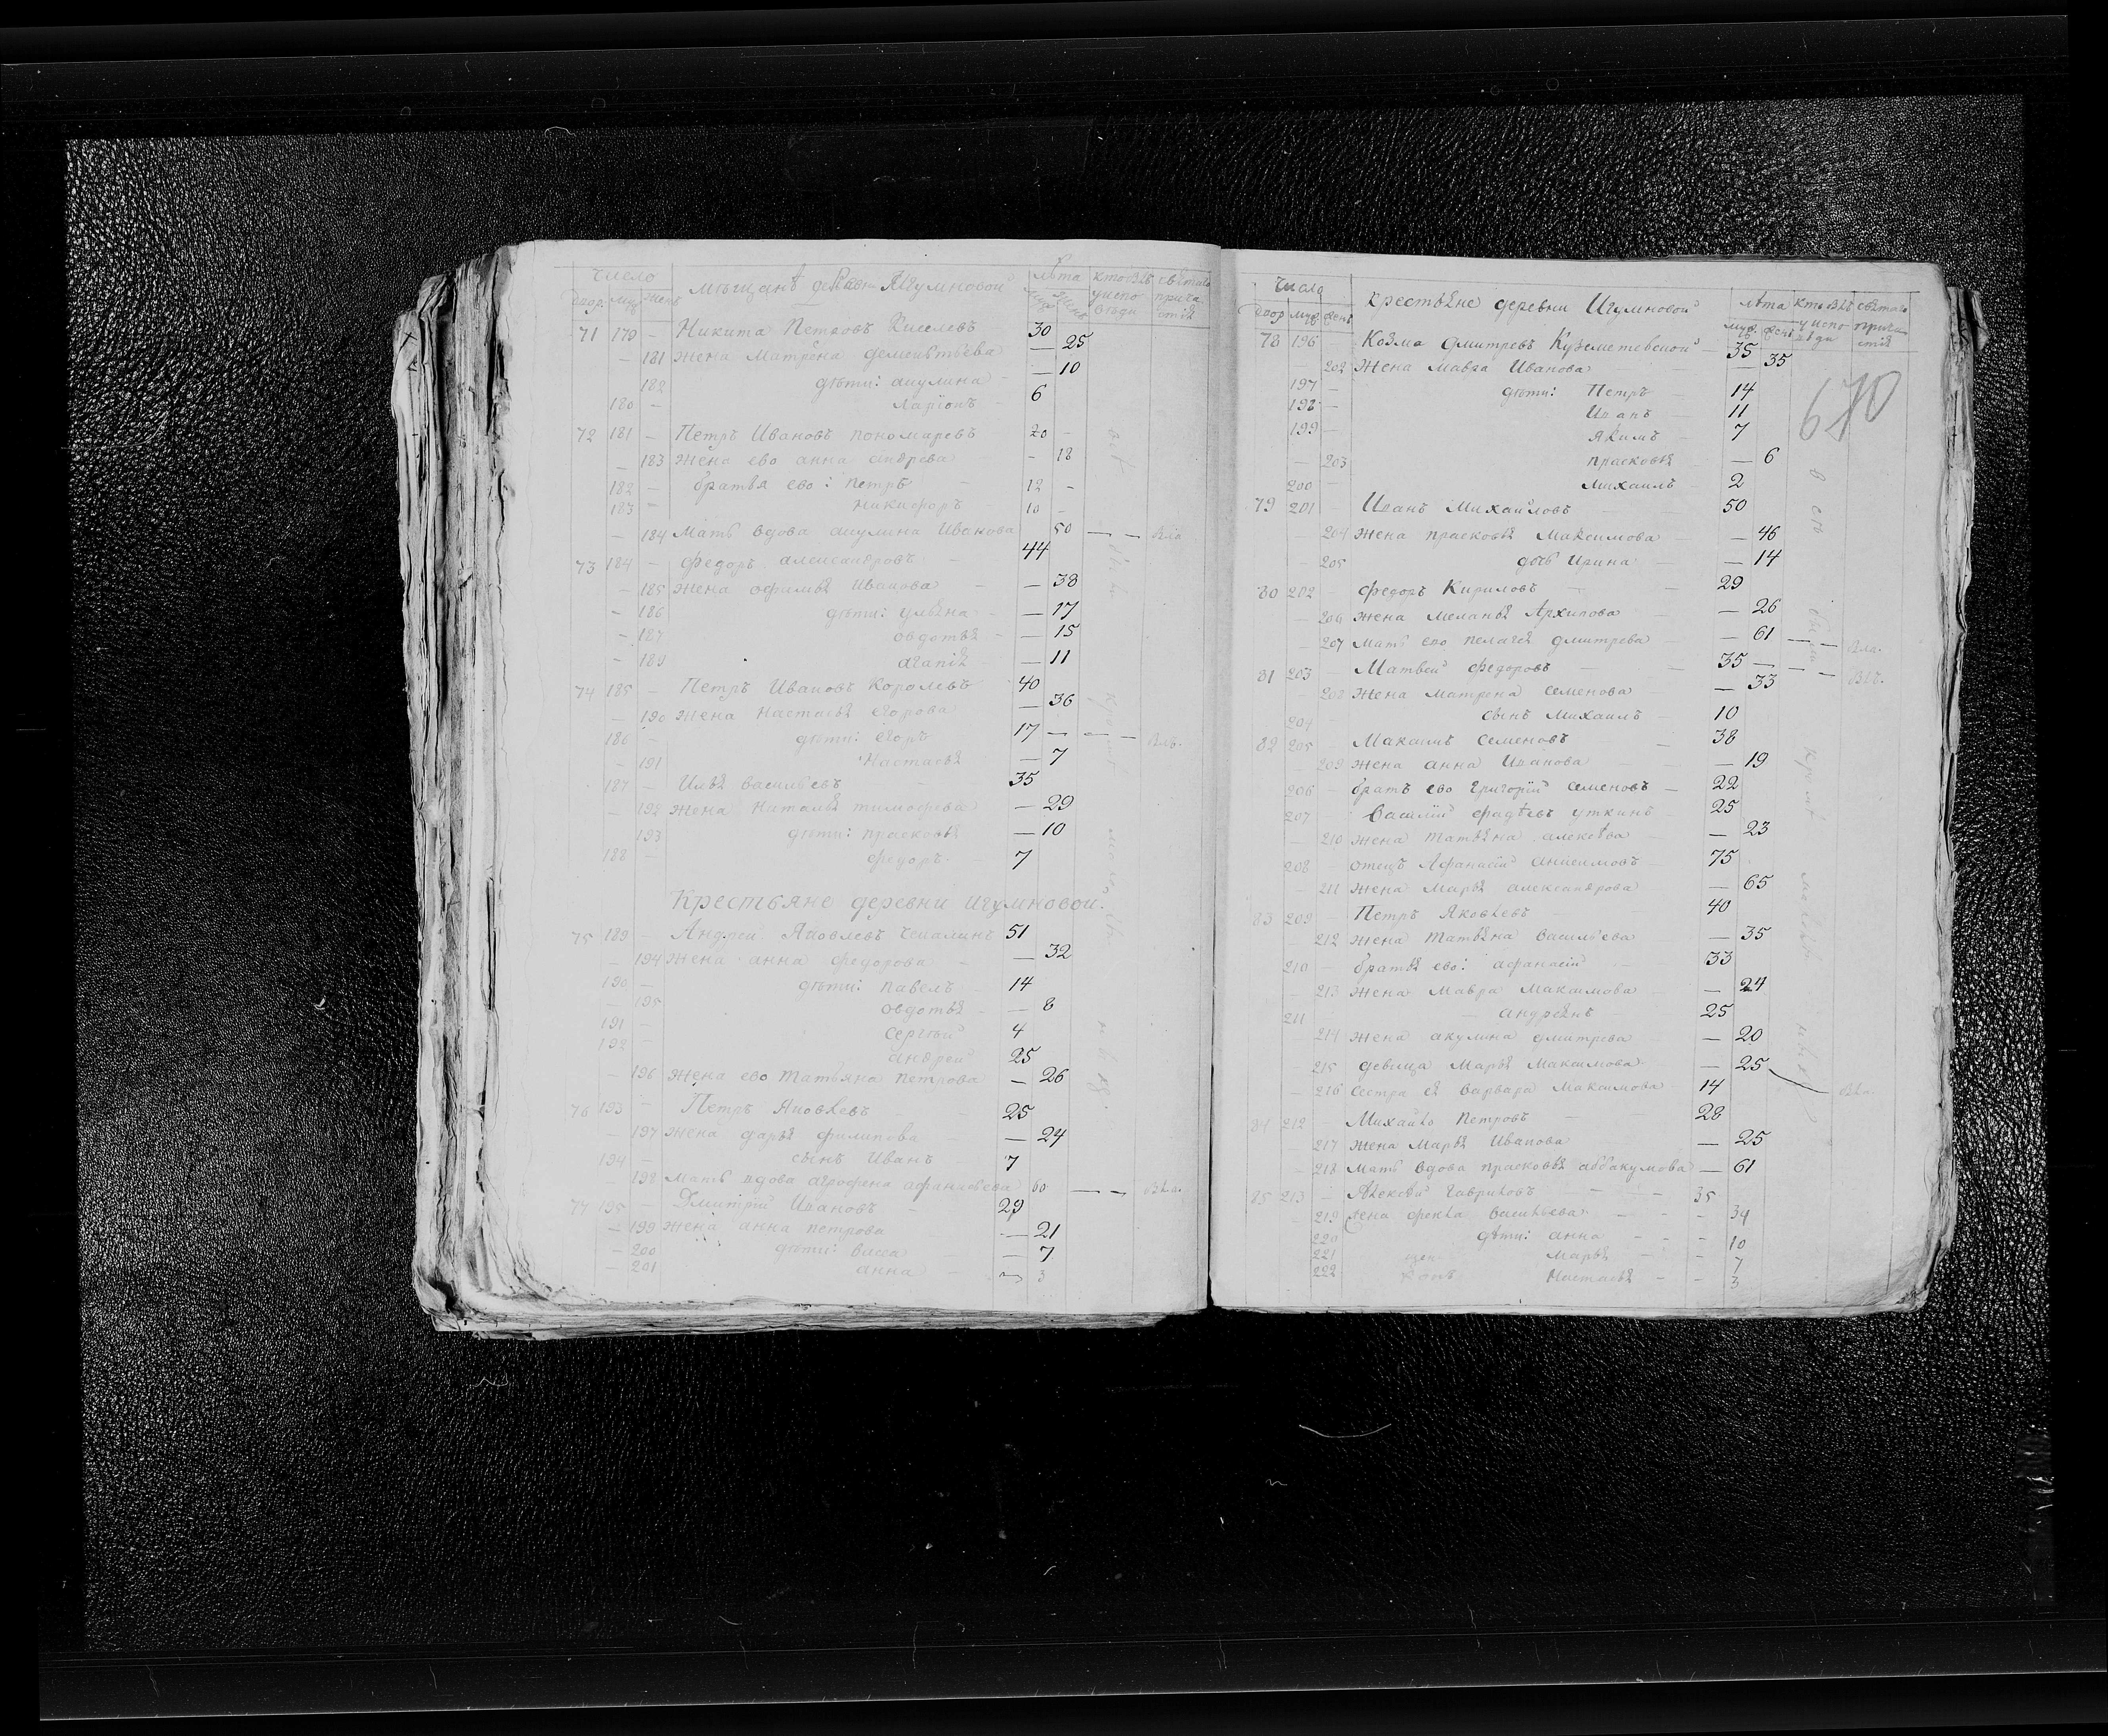 Число
мѣщанѣ деревни Игумновой
лѣта
кто бы
у испо
вѣди
святаго
прича
стія
двор. муж женъ
71 179 – Никита Петровъ Киселевъ 30
– 181 жена Матрена дементьева – 25
182 дѣти: акулина – 10
180 – Ларіонъ 6
72 181 – Петръ Ивановъ пономаревъ 20 –
– 183 жена ево анна андрева – 18
182 – братья ево: петръ 12 –
183 – никифоръ 10 –
– 184 Мать вдова акулина Иванова 50
73 184 – федоръ александровъ 44
– 185 жена офимья Иванова – 38
– 186 дѣти: ульяна – 17
– 187 овдотья – 15
– 189 агапія – 11
74 185 – Петръ Ивановъ Королевъ 40
– 190 жена Настасья егорова – 36
186 – дѣти: егоръ 17 –
– 191 Настасья – 7
187 – Илья васильевъ 35
– 192 жена Наталья тимофева – 29
193 дѣти: прасковья – 10
188 – федоръ 7
Крестьяне деревни игумновои.
75 189 – Андреи Яковлевъ 51
– 194 жена анна федорова – 32
190 – дѣти: павелъ 14
– 195 овдотья – 8
191 – сергѣй 4
192 – андреи 25
– 196 жена ево татьяна петрова – 26
76 193 – Петръ Яковлевъ 25
– 197 жена дарья филипова – 24
194 – сынъ Иванъ 7
– 198 мать вдова агрофена афанасьева 60
77 195 – Дмитрій Ивановъ 29
– 199 жена анна петрова – 21
– 200 дѣти: васса – 7
– 201 анна 3
Число
крестьяне деревни Игумновой
лѣта
кто бы
у испо
вѣди
святаго
прича
стія
двор муж женъ
670
78 196 Козма дмитревъ 35
– 202 жена мавра Иванова – 35
197 – дѣти: Петръ 14
198 – Иванъ 11
199 – якимъ 7
– 203 прасковья – 6
200 – михаилъ 2
79 201 – Иванъ Михаиловъ 50
– 204 жена прасковья Максимова – 46
– 205 дочь Ирина – 14
80 202 – федоръ Кириловъ 29
– 206 жена меланья Архипова – 26
– 207 мать ево пелагея дмитрева – 61
81 203 – Матвеи федоровъ 35
– 208 жена матрена семенова – 33
204 – сынъ михаилъ 10
82 205 – Максимъ семеновъ 38
– 209 жена анна Иванова – 19
206 – братъ ево григорій семеновъ 22
207 – Василій фадѣевъ уткинъ 25
– 210 жена татьяна алексѣва – 23
208 – отецъ Афанасій анисимовъ 75
– 211 жена марья александрова – 65
83 209 – Петръ Яковлевъ 40
– 212 жена татьяна васильева – 35
210 – братья ево: афанасій 33
– 213 жена мавра максимова – 24
211 – андреянъ 25
– 214 жена акулина дмитрева – 20
– 215 девица марья максимова – 25
– 216 сестра ея варвара максимова 14
84 212 – Михайло петровъ 28
– 217 жена марья иванова – 25
– 218 мать вдова прасковья аввакумова – 61
85 213 – Алексѣи гавриловъ – 35
– 219 жена фекла васильева – 34
– 220 дѣти: анна – 10
221 марья – 7
222 настасья – 3